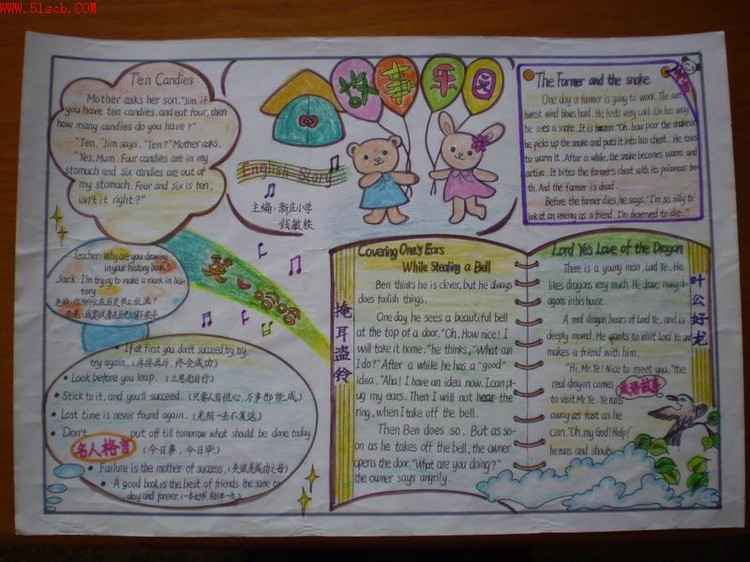 www.51scb.com
Ten Candies
Mother asks her son, "Jim, if
you have ten candies, and eat four, then
how many candies do you have?"
"Ten," Jim says. "Ten?" Mother asks.
"Yes, Mum. Four candies are in my
stomach and six candies are out of
my stomach. Four and six is ten,
isn't it right?"
故事乐园
English Story
主编:新庄小学
钱敏
The Farmer and the snake
One day a farmer is going to work. The
wind blows hard. He feels very cold. On his way
he sees a snake. It is frozen. "Oh, how poor the snake
he picks up the snake and puts it into his chest. He tries
to warm it. After a while, the snake becomes warm and
active. It bites the farmer's chest with its poisonous
th. And the farmer is dead.
Before the farmer dies, he says, "I'm so silly to
look at an enemy as a friend. I'm deserved to die."
Teacher: Why are you drawing
in your history book?
Jack: I'm trying to make a mark in his-
tory.
If at first you don't succeed, try, try,
try again. (再接再厉,终会成功)
Look before you leap. (三思而后行)
Stick to it, and you'll succeed. (只要人有恒心,万事都能成)
Lost time is never found again. (光阴一去不复返)
Don't put off till tomorrow what should be done today.
名人格言
(今日事,今日毕)
Failure is the mother of success. (失败是成功之母)
A good book is the best of friends, the same to-
day and forever.
Covering One's Ears
While Stealing a Bell
掩耳盗铃
Ben thinks he is clever, but he always
does foolish things.
One day he sees a beautiful bell
at the top of a door. "Oh, How nice! I
will take it home." he thinks, "What can
I do?" After a while he has a "good"
idea. "Aha! I have an idea now. I can pl-
ug my ears. Then I will not hear the
ring, when I take off the bell.
Then Ben does so. But as so-
on as he takes off the bell, the owner
opens the door. "What are you doing?"
the owner says angrily.
Lord Ye's Love of the Dragon
叶公好龙
There is a young man, Lord Ye. He
likes dragons very much. He draws many
agons in his house.
A real dragon hears of Lord Ye, and is
deeply moved. He wants to visit Lord Ye and
makes a friend with him.
"Hi, Mr. Ye! Nice to meet you," the
real dragon comes
成语故事
to visit Mr Ye. Ye runs
away as fast as he
can. "Oh, my God! Help!"
he runs and shouts.